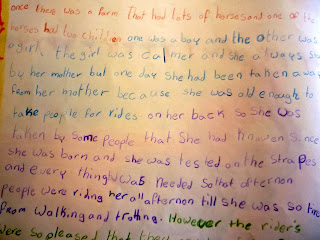 once there was a Farm That had lots of horses and one of the
horses had two children one was a boy and the other was
a girl. the girl was calmer and she always sta
by her mother but one day she had been taken away
from her mother because she was old enough to
take people for rides on her back so she was
taken by some people that she had knowen since
she was born and she was tested on the straps
and every thing was needed So that afternon
people were riding her all afternon till she was so tire
from walking and troting. However the rider's
were so pleased that they